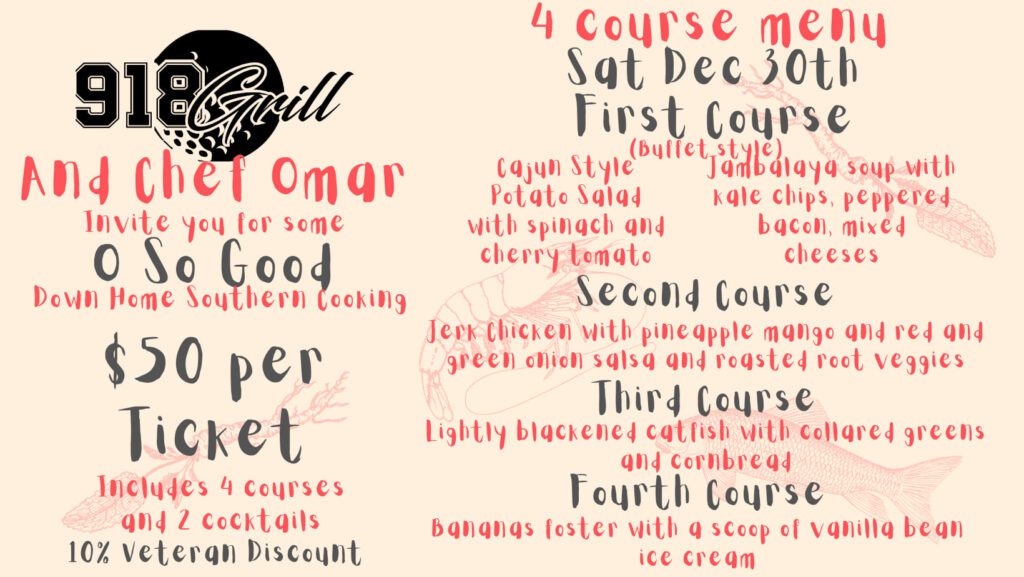 918 Grill
And Chef Omar
Invite you for some
O So Good
Down Home Southern Cooking
$50 per
Ticket
Includes 4 courses
and 2 cocktails
10% Veteran Discount
4 course menu
Sat Dec 30th
First Course
(Buffet style)
Cajun Style
Potato Salad
with spinach and
cherry tomato
Jambalaya soup with
kale chips, peppered
bacon, mixed
cheeses
Second Course
Jerk Chicken with pineapple mango and red and
green onion salsa and roasted root veggies
Third Course
Lightly blackened catfish with collared greens
and cornbread
Fourth Course
Bananas foster with a scoop of vanilla bean
ice cream